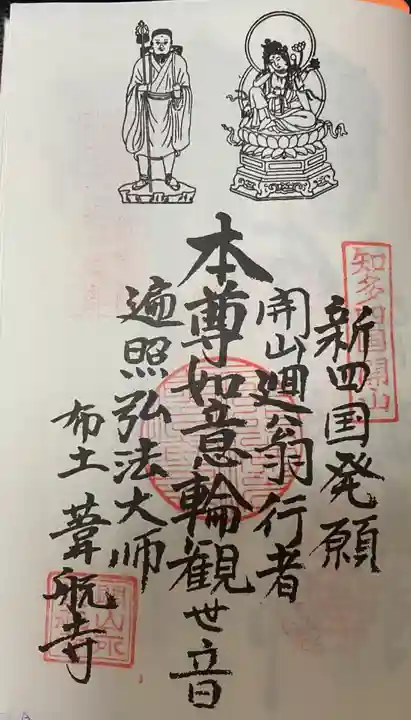 新四国発願
開山廻翁行者
本尊如意輪観世音
遍照弘法大师
布土 葦航寺
知多四国開山